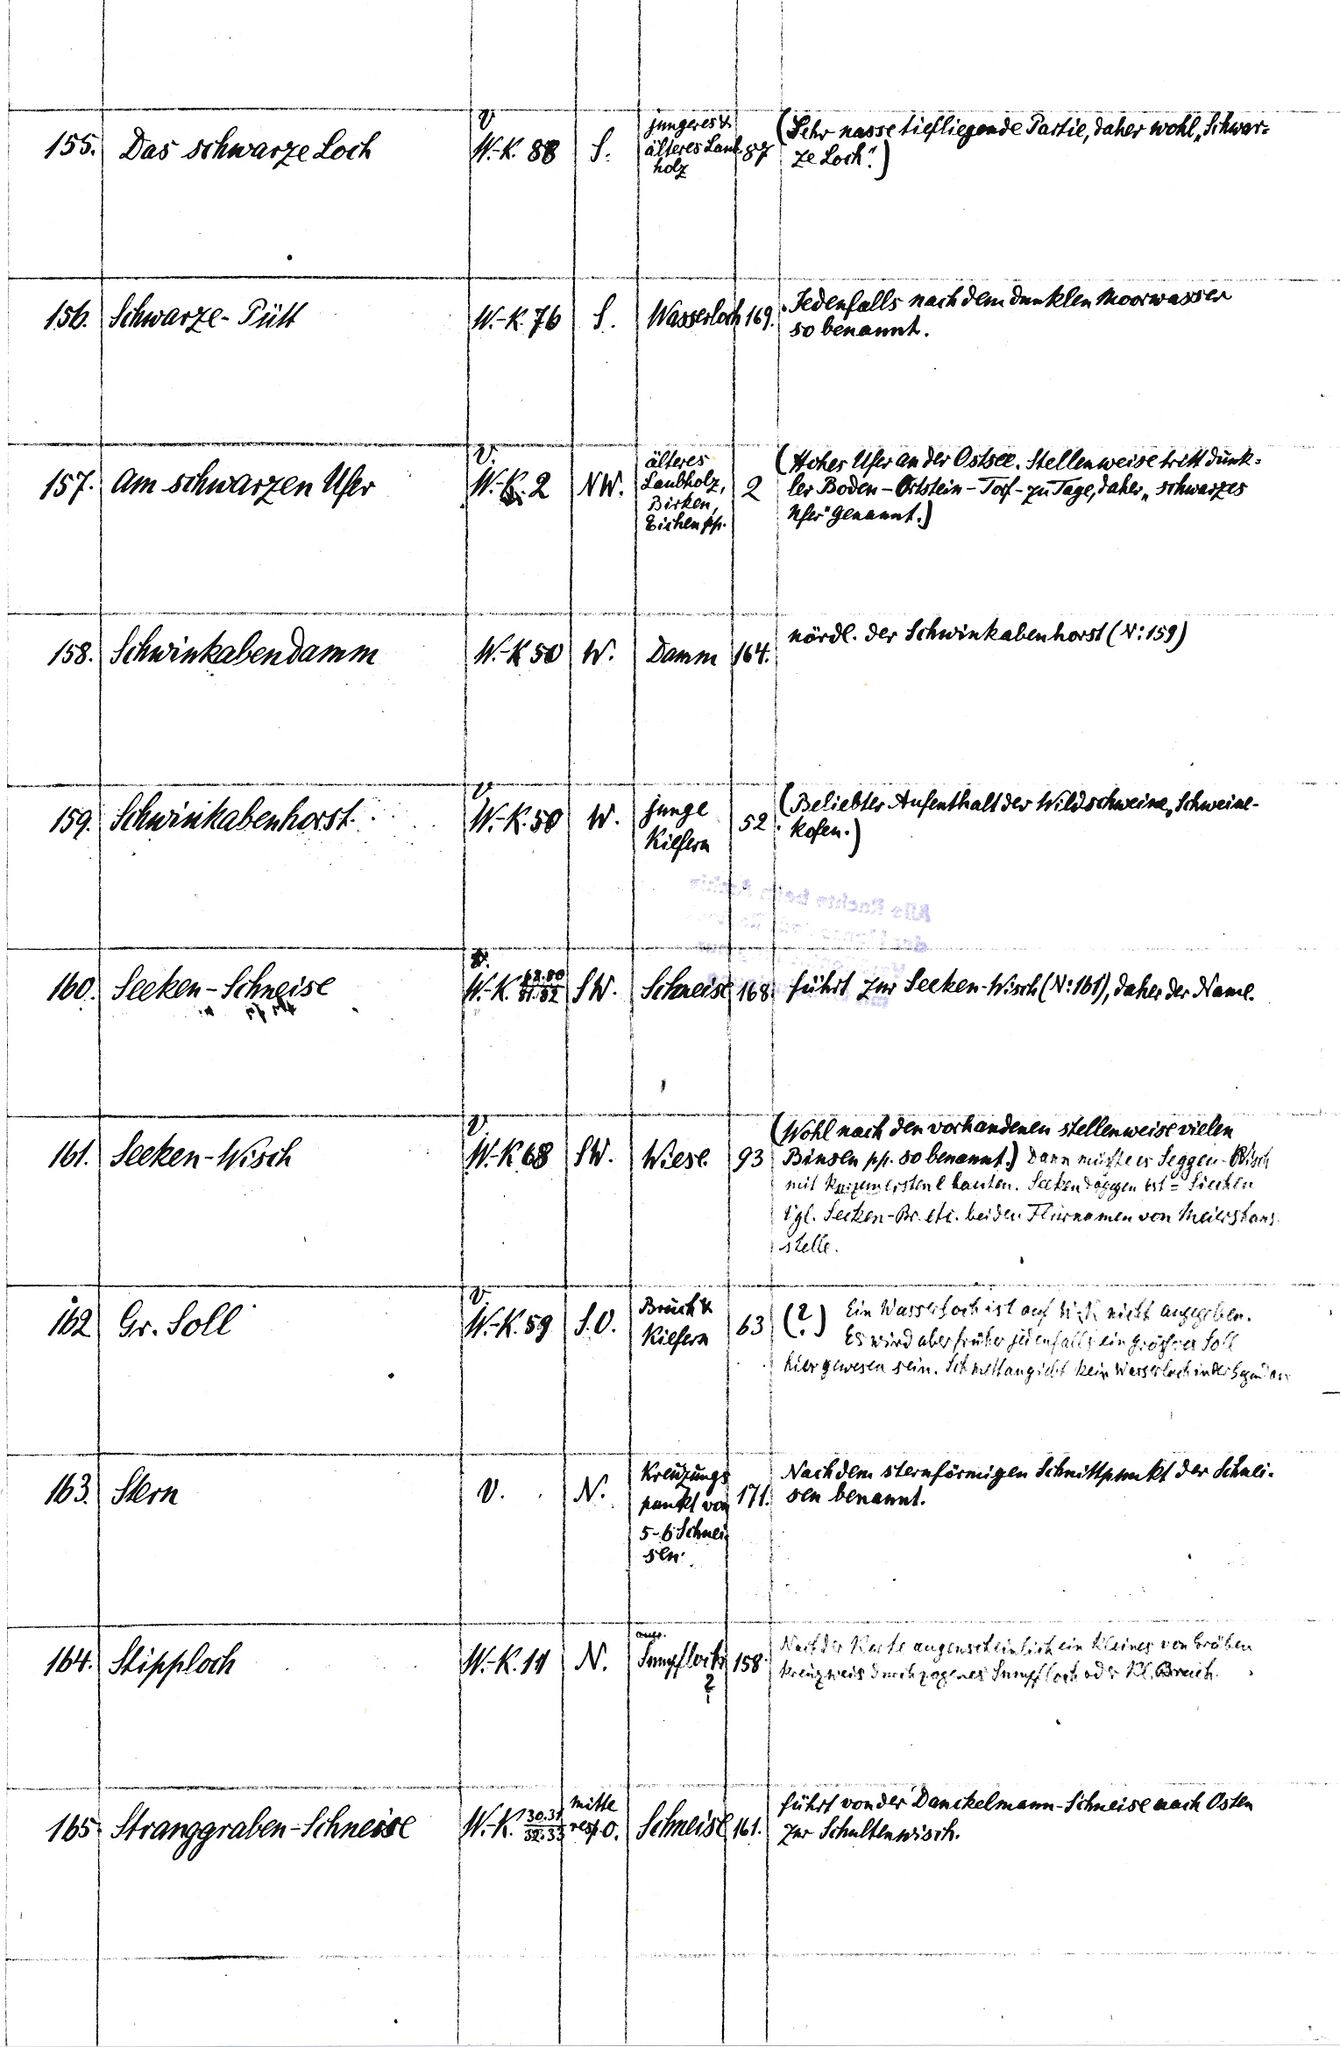 155. Das schwarze Loch V W.-K. 88 S. jungeres & älteres Laub- holz 87 (Sehr nasse tiefliegende Partie, daher wohl „Schwar=
ze Loch".)
156. Schwarze-Pütt W.-K. 76 S. Wasserloch 169. Jedenfalls nach dem dunklen Moorwasser
so benannt.
157. Am schwarzen Ufer V. W.-K. 2 NW. älteres Laubholz, Birken, Eichen pp. 2 (Hohes Ufer an der Ostsee. Stellenweise tritt dunk=
ler Boden – Ortstein – Torf – zu Tage, daher „schwarzes
Ufer" genannt.)
158. Schwinkabendamm W.-K. 50 W. Damm 164. nördl. der Schwinkabenhorst (N: 159)
159. Schwinkabenhorst V. W.-K. 50 W. junge Kiefern 52 (Beliebter Aufenthalt der Wildschweine, Schweine-
kofen.)
160. Seeken-Schneise V. W.-K. 81.82 SW. Schneise 168. führt zur Seeken-Wisch (N: 161), daher der Name.
161. Seeken-Wisch V. W.-K. 68 SW. Wiese 93 (Wohl nach den vorhandenen stellenweise vielen
Binsen pp. so benannt.) Dann müsste es Seggen-Wisch
mit kurzem ersten e lauten. Seeken dagegen ist = Siecken
vgl. Seeken-Br. etc. bei den Flurnamen von Meiershans
stelle.
162 Gr. Soll V W.-K. 59 S.O. Bruch & Kiefern 63 (?) Ein Wasserloch ist auf W.K. nicht angegeben.
Es wird aber früher jedenfalls ein grösseres Soll
hier gewesen sein. Schmettau giebt kein Wasserloch in der Gegend an
163. Stern V. N. Kreuzungs punkt von 5-6 Schnei- sen. 171. Nach dem sternförmigen Schnittpunkt der Schnei-
sen benannt.
164. Stipploch W.-K. 11 N. Sumpfloch ? 158. Nach der Karte augenscheinlich ein kleines von Gräben
kreuzweis durchzogenes Sumpfloch oder Kl. Bruch.
165. Stranggraben-Schneise W.-K. 30.31 32.33 mitte resp. O. Schneise 161. führt von der Danckelmann-Schneise nach Osten
zur Schultenwisch.